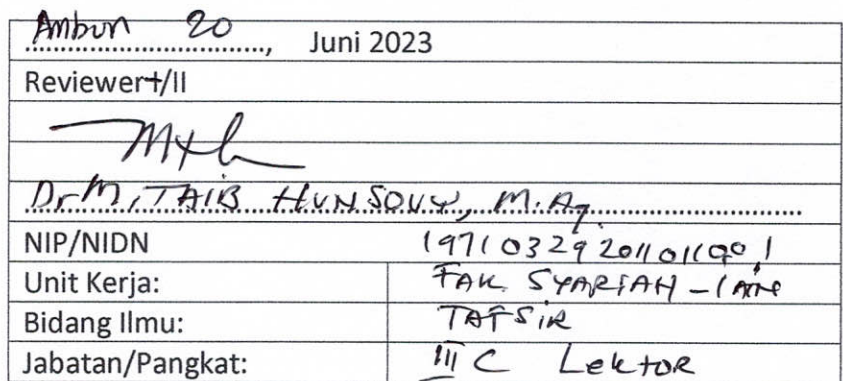 Ambon 20, Juni 2023
Reviewer I/II
Dr M, TAIB HUNSOUW, M.Ag
NIP/NIDN 197103292011011001
Unit Kerja: FAK SYARIAH - IAIN
Bidang Ilmu: TAFSIR
Jabatan/Pangkat: III C Lektor